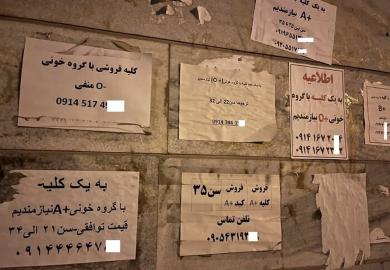 به یک کلیه
A+ نیازمندیم
سن ۲۵ تا ۳۵
کلیه فروشی با گروه خونی
O- منفی
0914 517 4
اطلاعیه
به یک کلیه با گروه
خونی O+ نیازمندیم
۰۹۱۴ ۱۶۷ ۲۲
B+
به یک کلیه
با گروه خونی A+ نیازمندیم
قیمت توافقی-سن ۲۱ الی ۳۴
۰۹۱۴۴۴۶۴۷
فروش فروش سن ۳۵
کلیه A+ کبد A+
تلفن تماس
۰۹۰۵۴۳۱۹۲